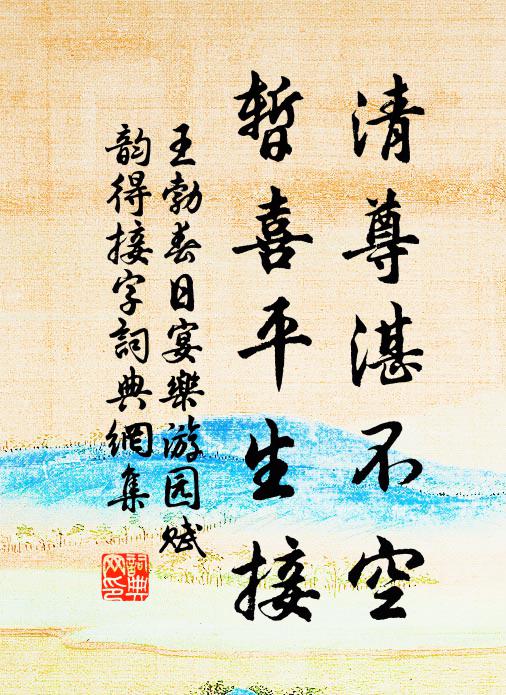 清尊湛不空
暫喜平生接
王勃春日宴樂游园賦
韵得接字詞典網集
詞典网印